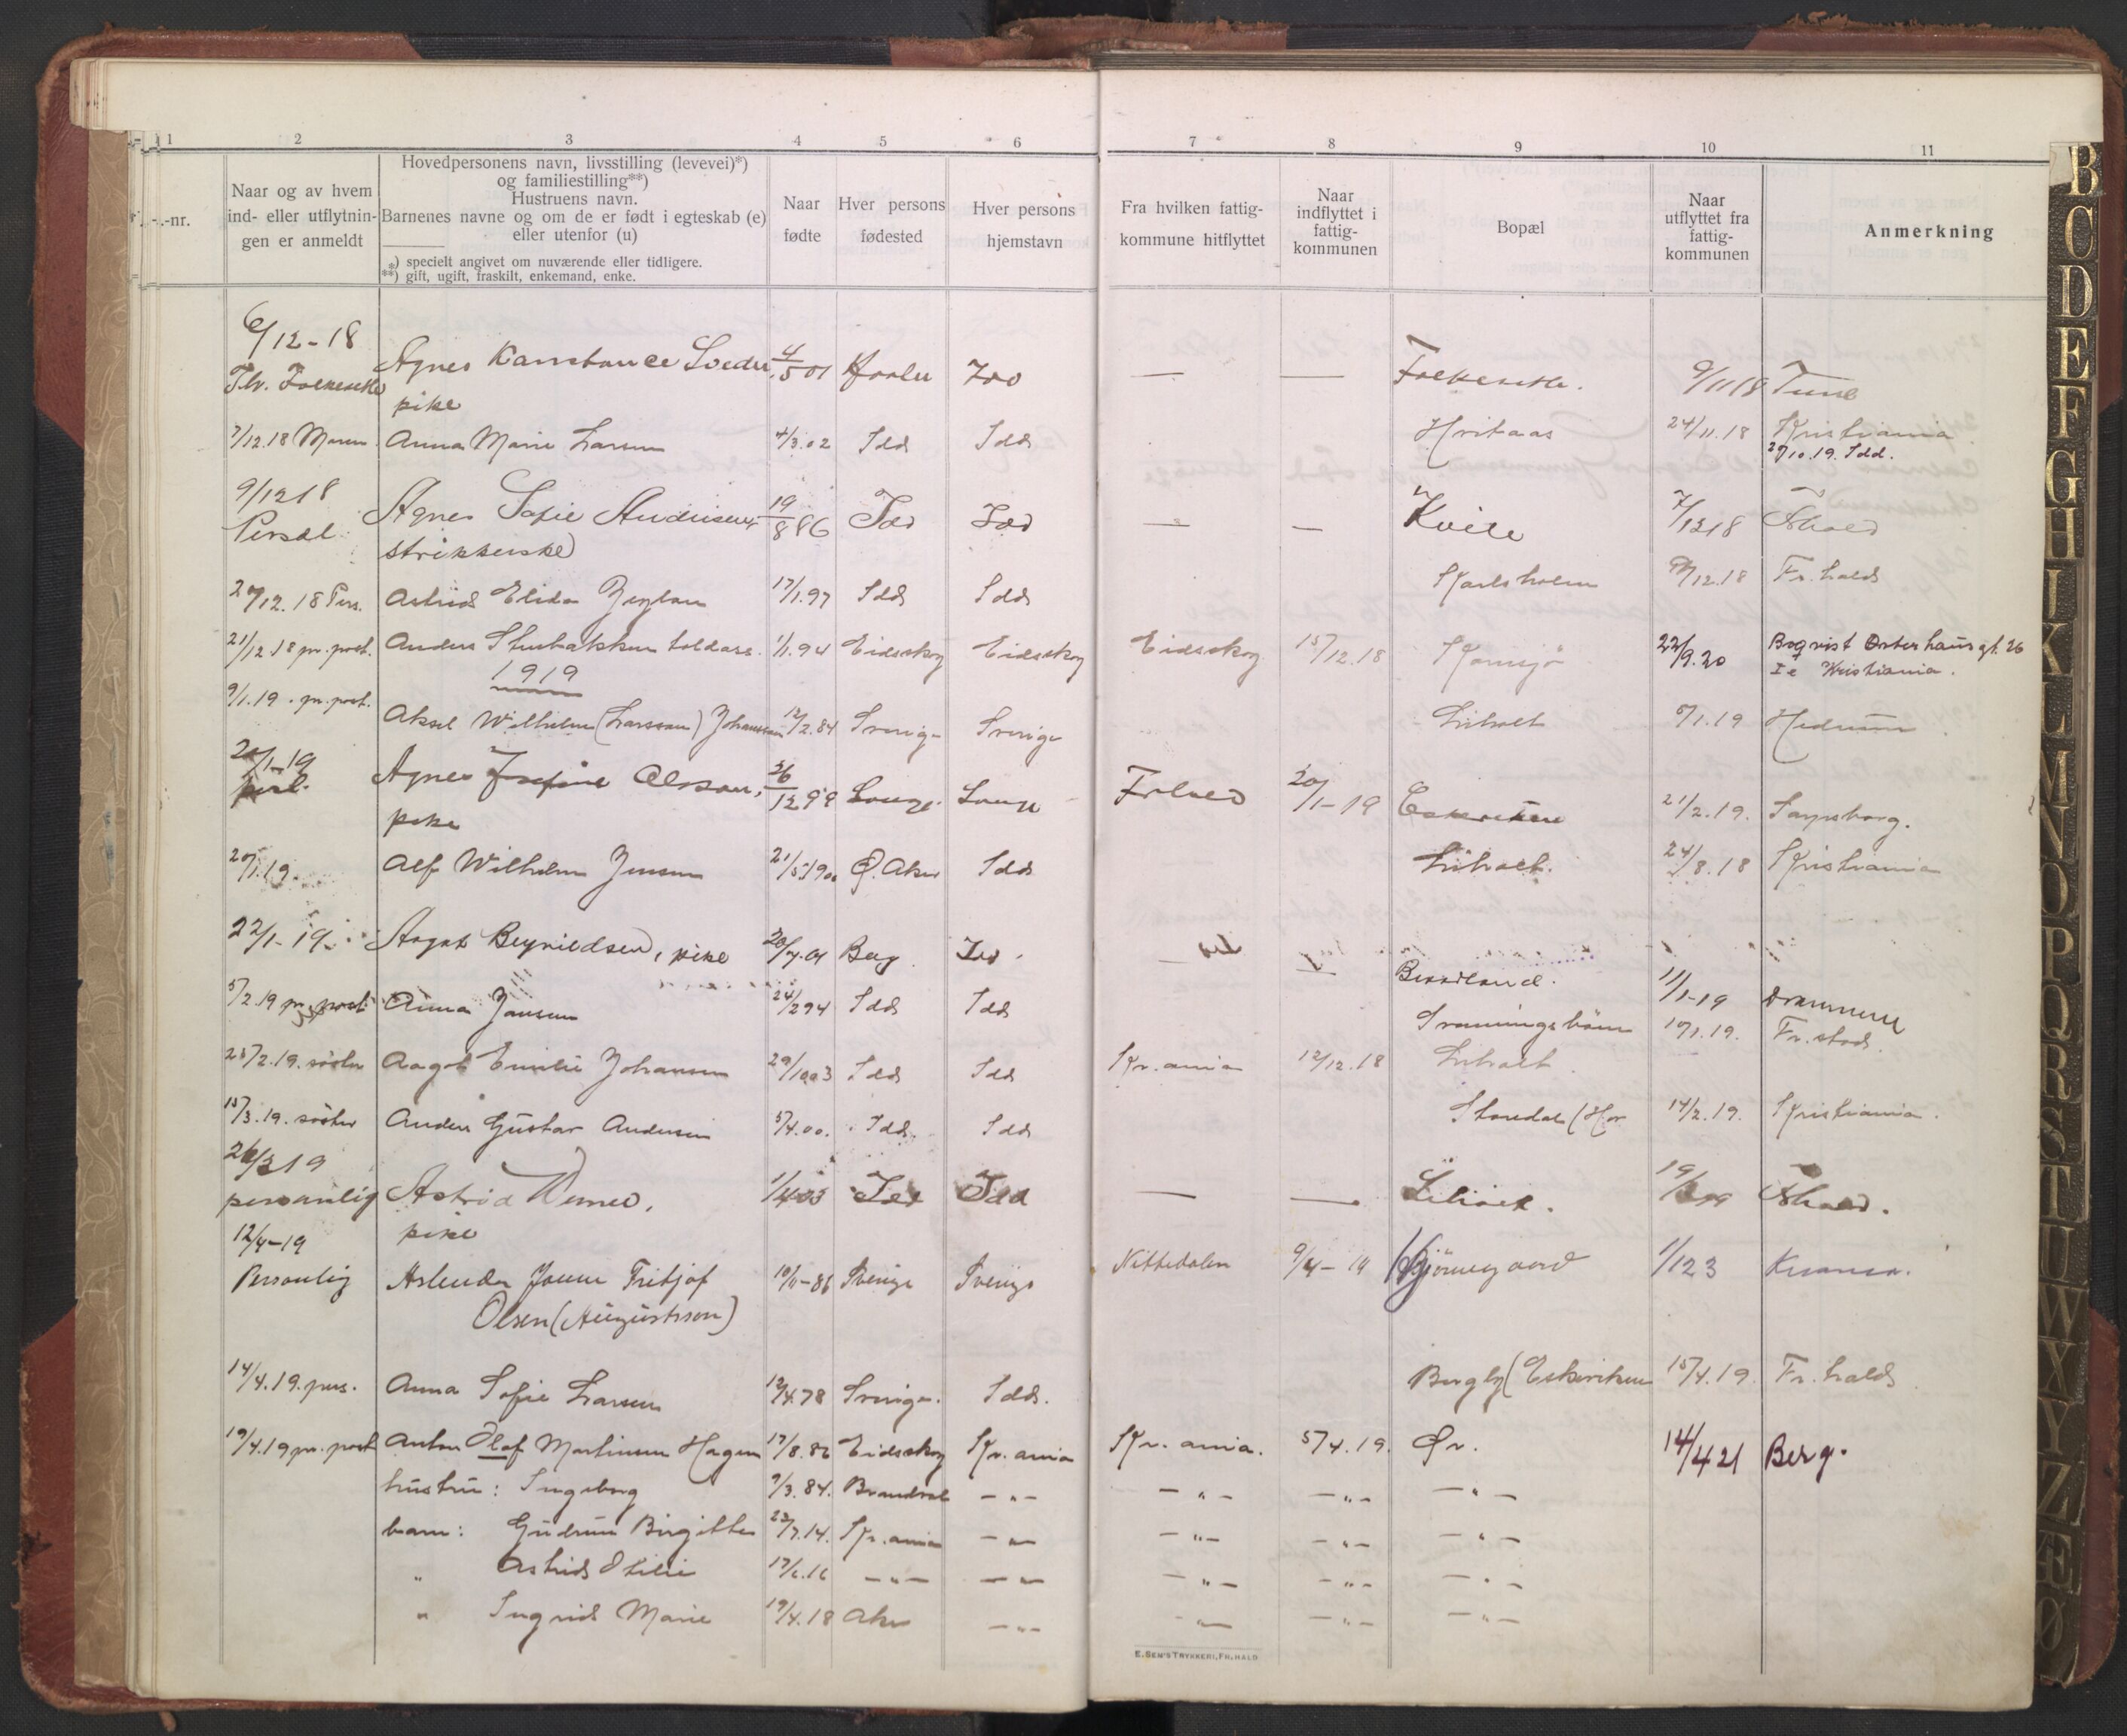 1 2 3 4 5 6 7 8 9 10 11
-nr.
Naar og av hvem
ind- eller utflytnin-
gen er anmeldt
Hovedpersonens navn, livsstilling (levevei)*)
og familiestilling**)
Hustruens navn.
Barnenes navne og om de er født i egteskab (e)
eller utenfor (u)
*) specielt angivet om nuværende eller tidligere.
**) gift, ugift, fraskilt, enkemand, enke.
Naar
fødte
Hver persons
fødested
Hver persons
hjemstavn
Fra hvilken fattig-
kommune hitflyttet
Naar
indflyttet i
fattig-
kommunen
Bopæl
Naar
utflyttet fra
fattig-
kommunen
Anmerkning
6/12-18
Agnes 4/5 01 Idd — — 9/11 18 Tune
pike
7/12.18 Anna Marie Larsen 4/3.02 Idd Idd 24/11.18 Kristiania
27/10.19. Idd.
9/12 18
Agnes Sofie Andersen, 19/8 86 Idd Idd — — 7/12 18 Fhald
strikkerske
Pers. Astrid Elida 17/1.97 Idd Idd Karlsholm Fr.hald
21/12 18 pr. post. Anders 1/1.94 Eidsskog Eidsskog Eidsskog 15/12.18 Kornsjø 22/9.20 Boqvist Osterhausgt. 26
Kristiania.
1919
9/1.19. pr. post. Aksel Wilhelm (Larsson) Johansson 12/2.84 Sverige Sverige 5/1.19 Hedrum
20/1-19
Agnes Josefine Olsson, 26/12 99 Frhald 20/1-19 Eskeviken 21/2.19. Sarpsborg.
pike
Alf Wilhelm Jensen Ø. Aker Idd 24/8.18 Kristiania
22/1-19. Aagot pike Berg Idd — — 11/1-19 Drammen
5/2.19 pr. post. Anna Jansen 24/2 94 Idd Idd Fr.stad.
25/2.19. søster Aagot Emilie Johansen 29/10 03 Idd Idd Kr.ania 12/12.18
15/3.19. søster Anders Gustav Andersen 5/4.00. Idd Idd Storedal 14/2.19. Kristiania.
26/3 19
personlig Astrid 1/4 03 Idd Idd — — Fhald.
pike
12/4-19
Personlig 10/11-86 Sverige Sverige Nittedalen 9/4-19 Bjørnegaard 1/1 23
Olsen (Augustsson)
14/4.19. pers. Anna Sofie Larsen 12/4.78 Sverige. Idd. Bergly (Eskeviken 15/4.19. Fr.hald
19/4.19 pr. post Anton Olaf Martinsen Hagen 17/8.86 Eidsskog Kr.ania Kr.ania. 5/4.19. Ør. 14/4 21 Berg.
hustru: Ingeborg 9/3.84. Brandval —"— —"— —"— —"—
barn: Gudrun Birgitte 22/7.14. Kr.ania —"— —"— —"— —"—
" Astrid Otilie 17/6.16 —"— —"— —"— —"— —"—
" Ingrid Marie 19/4.18 Aker —"— —"— —"— —"—
E. SEM'S TRYKKERI, FR.HALD
B
C
D
E
F
G
H
I
K
L
M
N
O
P
Q
R
S
T
U
W
X
Y
Z
Æ
Ø